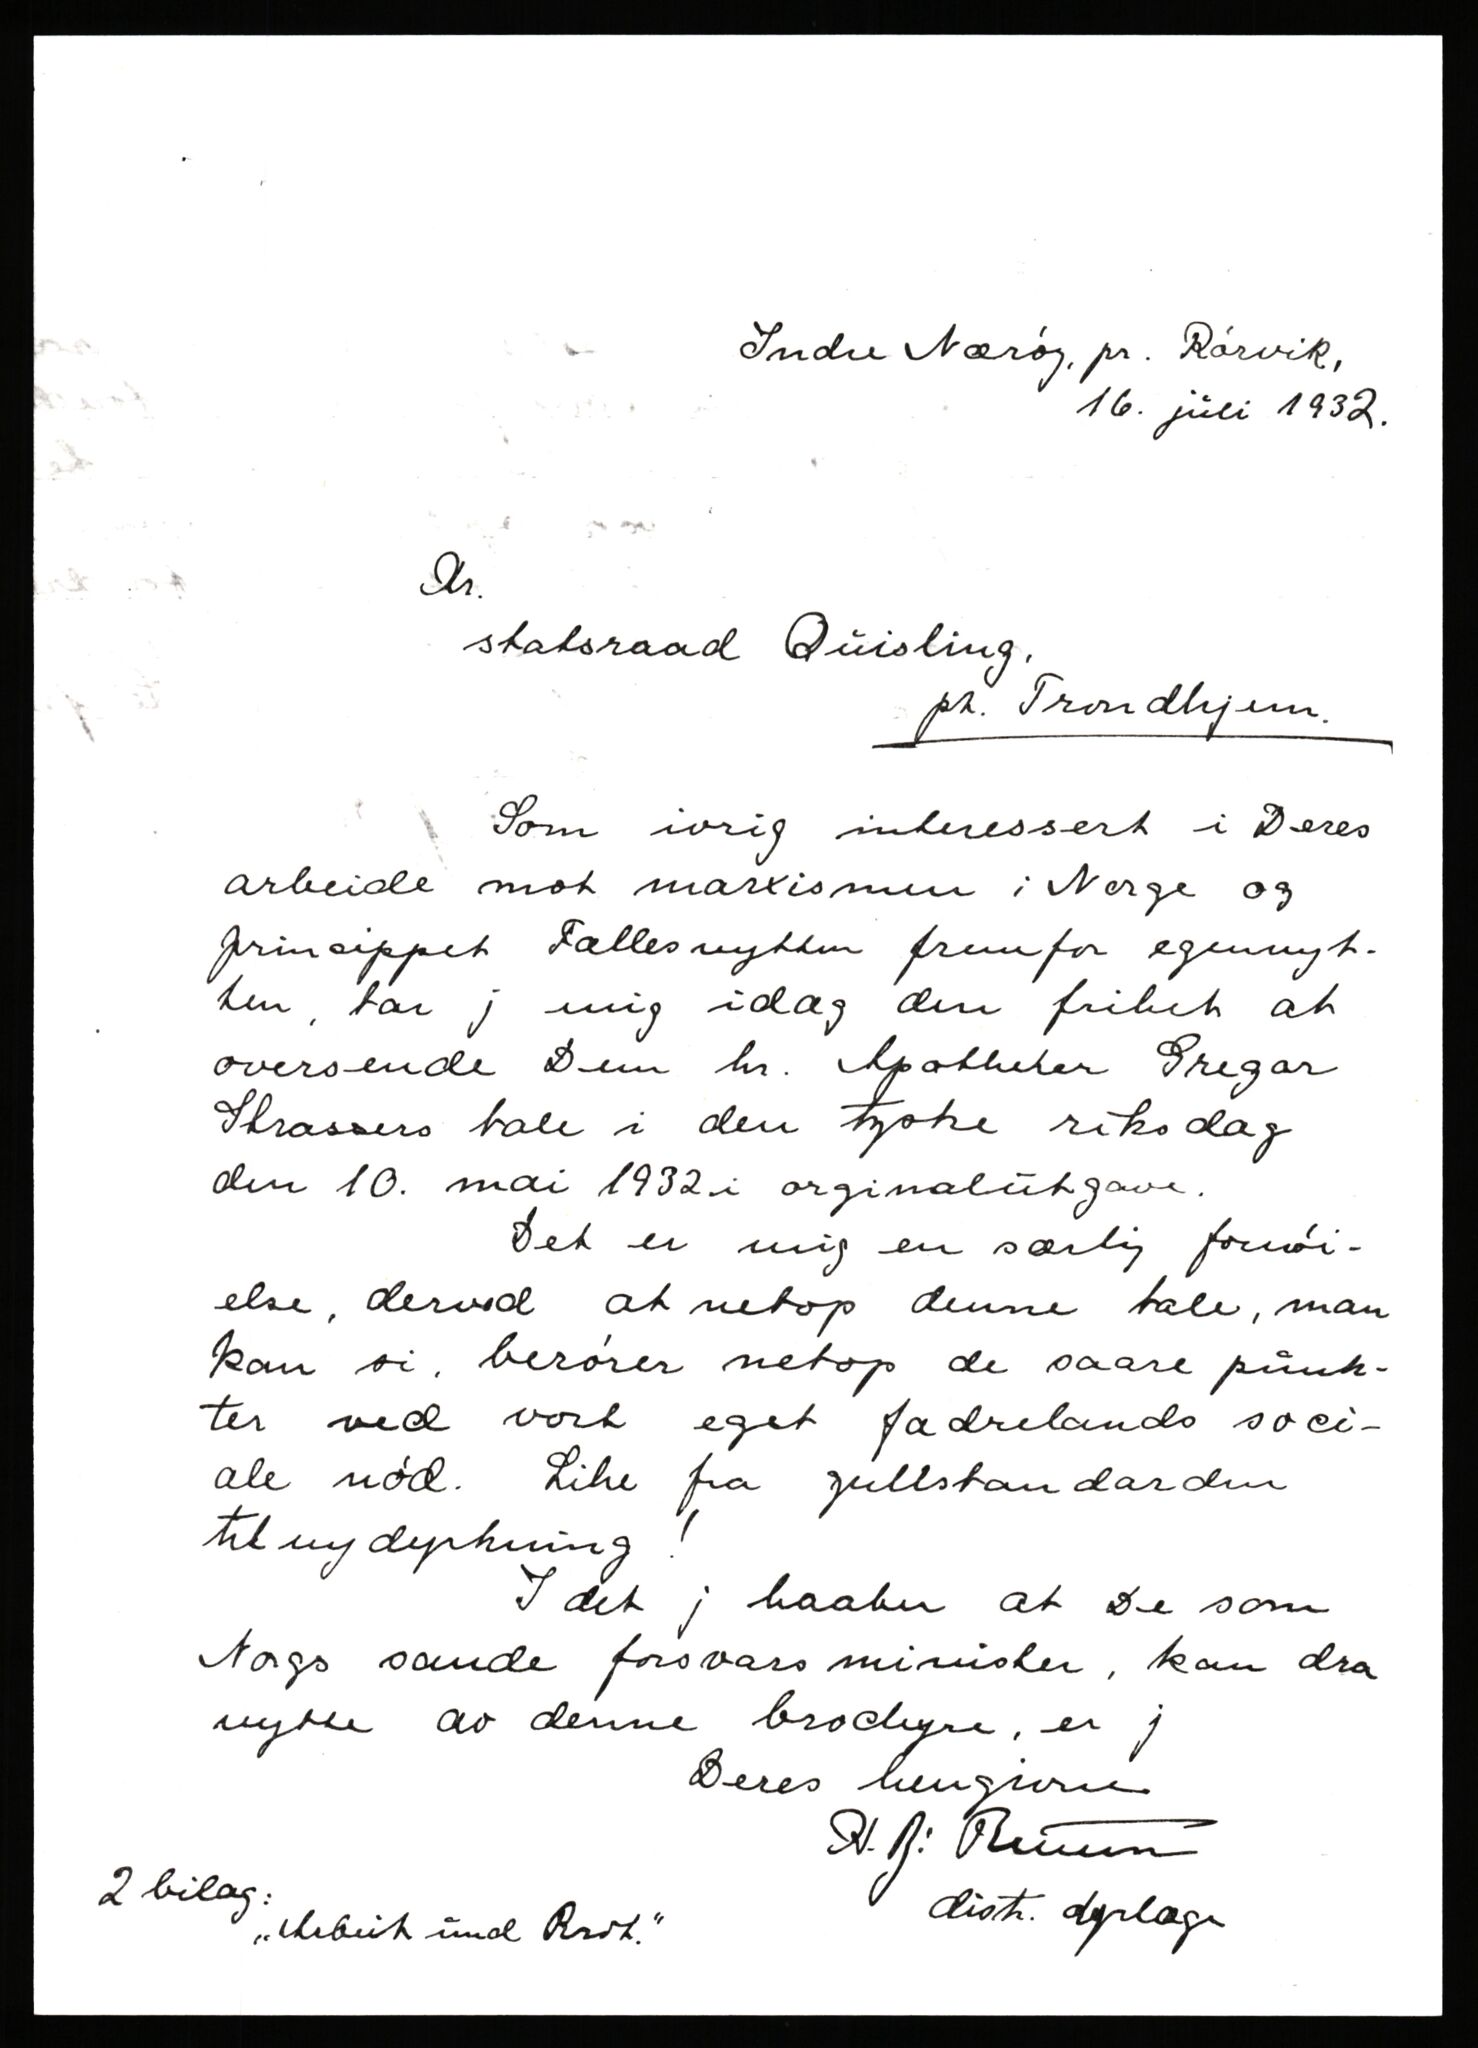 Indre Nærøy, pr. Rórvik,
16. júli 1932.
Hr.
statsraad Qúisling,
pt. Trondhjem.
Som ivrig interessert i Deres
arbeide mot marxismen i Norge og
princippet Fællesnytten fremfor egennyt-
ten, tar j mig idag den frihet at
oversende Dem hr. Apotheker Gregor
Strassers tale i den tyske riksdag
den 10. mai 1932 i orginalútgave.
Det er mig en særlig fornói-
else, derved at netop denne tale, man
kan si, berórer netop de saare púnk-
ter ved vort eget fædrelands soci-
ale nód. Like fra gullstandarden
til nydyrkning!
I det j haaber at De som
Norgs sande forsvarsminister, kan dra
nytte av denne brochyre, er j
Deres hengivne
H. Bj.
distr. dyrlæge
2 bilag:
„Arbeit und Brot."